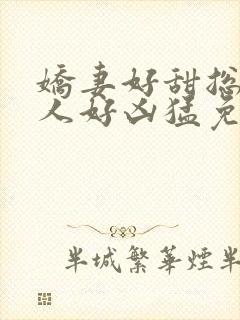 嬌妻好甜摠
人好凶猛免
半城繁華煙半